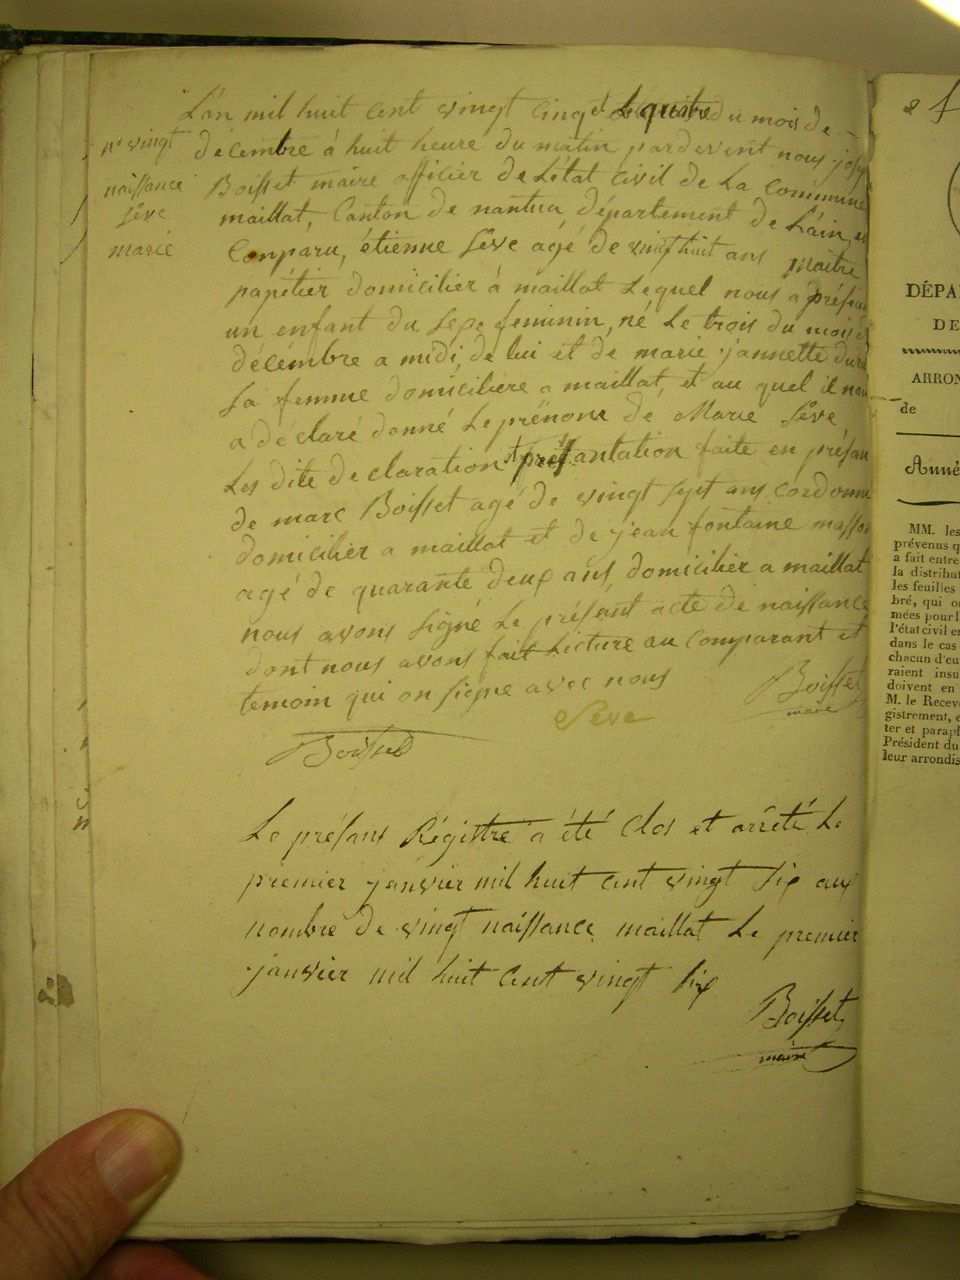 L'an mil huit cent vingt cinq Le quatre du mois de
décembre à huit heure du matin pardevent nous josep
Boisset maire officier de L'état civil de La Commune
maillat, Canton de nantua, département de L'ain, es
Comparu, étienne Sêve agé de vingt huit ans maitre
papétier domicilier à maillat Lequel nous a présen
un enfant du sexe feminin, né Le trois du mois de
décémbre a midi, de lui et de marie jannette
sa femme domicilière a maillat, et au quel il nou
a déclaré donné Le prénom de Marie Sêve
Les dite declaration et présantation faite en présan
de marc Boisset agé de vingt sept ans cordonn
domicilier a maillat et de jean fontaine masson
agé de quarante deux ans, domicilier a maillat
nous avons signé Le présant acte de naissance
dont nous avons fait Licture au comparant et
temoin qui on signe avec nous
n° vingt
naissance
Sêve
marie
Boisset
maire
Seve
Boisset
Le présans Régistre a été clos et arrêté Le
premier janvier mil huit cent vingt six aux
nombre de vingt naissance, maillat Le premier
janvier mil huit cent vingt six
Boisset
maire
DÉPA
DE
ARRON
de
Anné
MM. les
prévenus q
a fait entre
la distribut
les feuilles
bré, qui o
mées pour l
l'état civil e
dans le cas
chacun d'eu
raient insu
doivent en
M. le Recev
gistrement, e
ter et paraph
Président du
leur arrondis